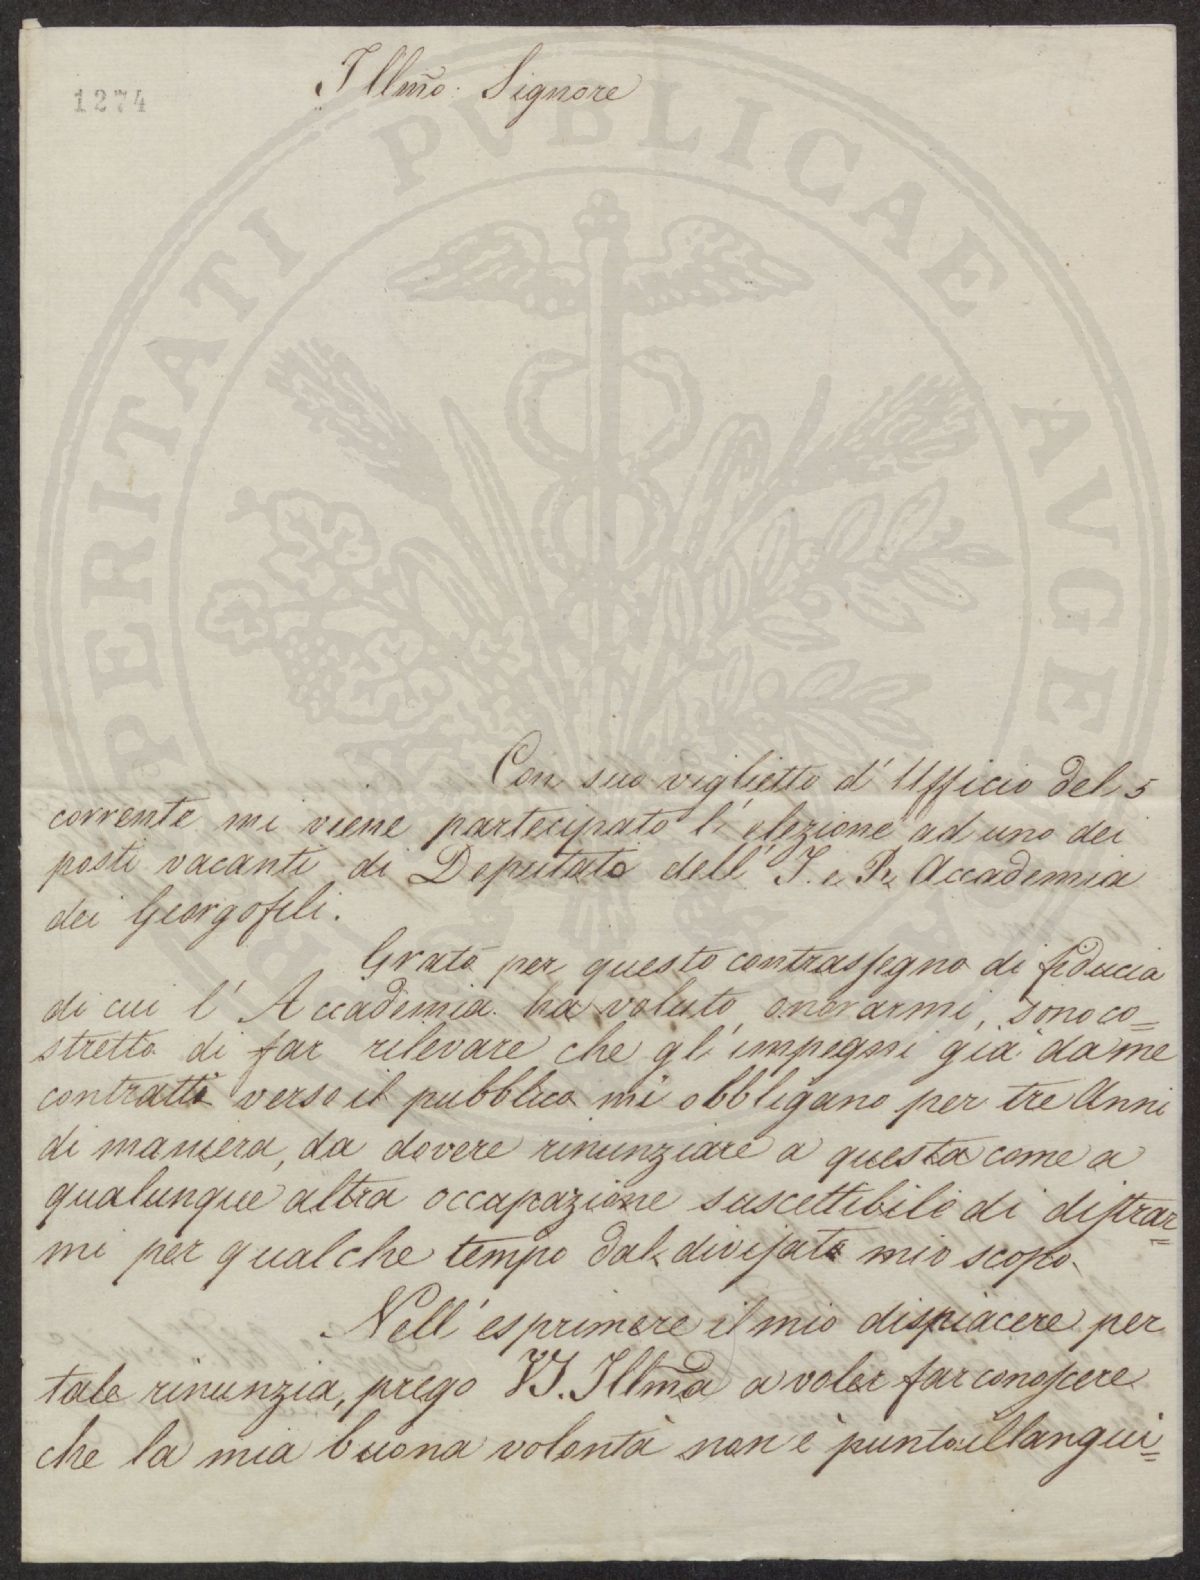 1274
Illmo: Signore
PROSPERITATI PVBLICAE AVGENDAE
Con suo viglietto d'Ufficio del 5
corrente mi viene partecipato l'elezione ad uno dei
posti vacanti di Deputato dell' I. e R. Accademia
dei Georgofili.
Grato per questo contrassegno di fiducia
di cui l'Accademia ha voluto onorarmi, sono co=
stretto di far rilevare che gl'impegni già da me
contratti verso il pubblico mi obbligano per tre Anni
di maniera, da dovere rinunziare a questa come a
qualunque altra occupazione suscettibile di distrar=
mi per qualche tempo dal divisato mio scopo.
Nell'esprimere il mio dispiacere per
tale rinunzia, prego VS. Illma a voler far conoscere
che la mia buona volontà non è punto illangui=